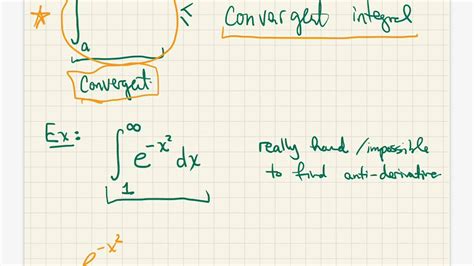 ∫ₐ ≤ convargent integral
Convergent
Ex: ∫₁^∞ e^{-x²} dx really hard / impossible
to find anti-derivative
e^{-x²}